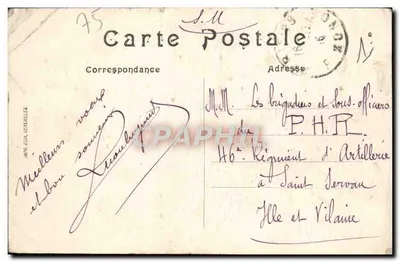 75
S.M
Carte Postale
Correspondance
Adresse
Meilleurs vœux
et bon souvenir
M.M. Les brigadiers et sous-officiers
du P.H.R.
46e Régiment d'Artillerie
à Saint Servan
Ille et Vilaine
CPARAMA